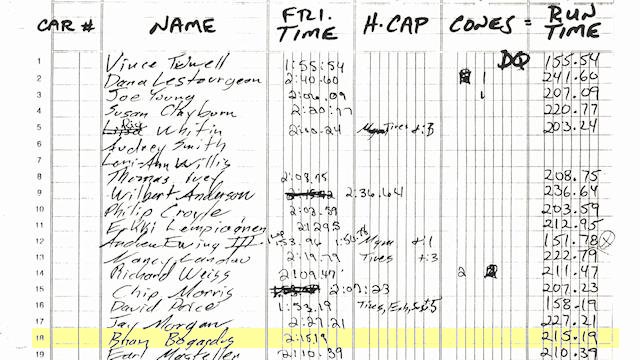 CAR # NAME FRI. TIME H.CAP CONES = RUN TIME
1 Vince Tidwell 1:55:54 DQ 155.54
2 Dana Lestourgeon 2:40.60 1 241.60
3 Joe Young 2:06.09 1 207.09
4 Susan Clayburn 2:20:77 220.77
5 Whitin 2:00.24 Tires +:3 203.24
6 Audrey Smith
7 Willis
8 Thomas Ivey 2:08.75 208.75
9 Wilbert Anderson 2:36.64 236.64
10 Philip Croyle 2:03.59 203.59
11 Erkki Lempiainen 212.95 212.95
12 Andrew Ewing III 1:53.96 +:1 151.78
13 Nancy Landau 2:19.79 Tires +:3 222.79
14 Richard Weiss 2:09.47 2 211.47
15 Chip Morris 2:07:23 207.23
16 David Price 1:53.19 Tires, 158.19
17 Jay Morgan 2:27.21 227.21
18 Bogardus 2:15.19 215.19
19 Earl 2:10.39 210.39